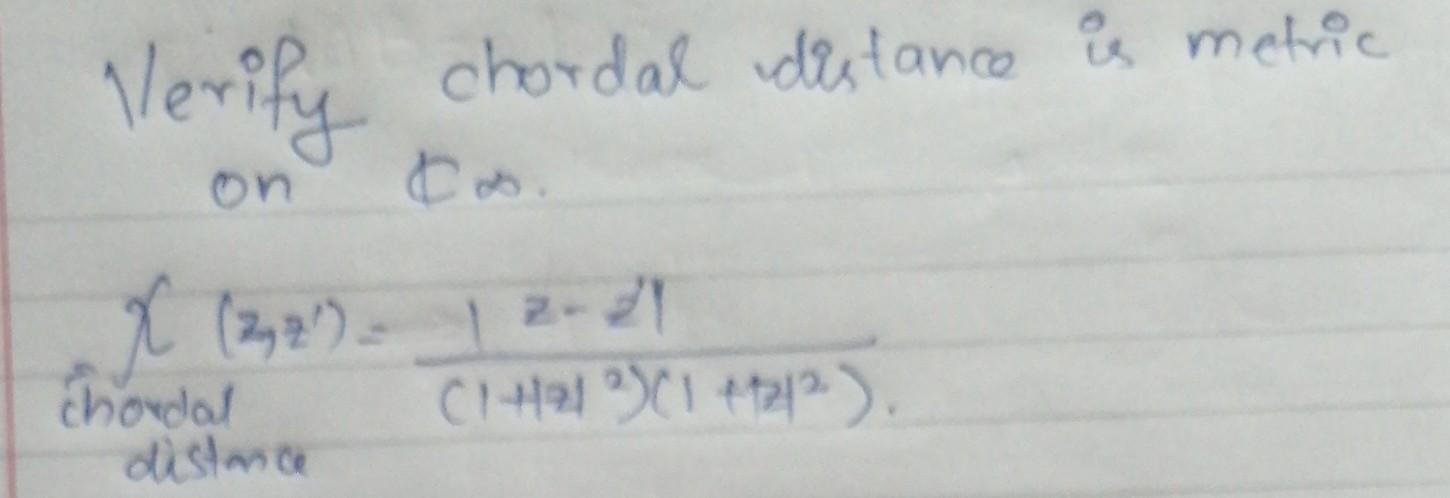 Verify chordal distance is metric
on ℂ∞.
χ (z,z') = |z-z'|
(1+|z|²)(1+|z|²).
chordal
distance